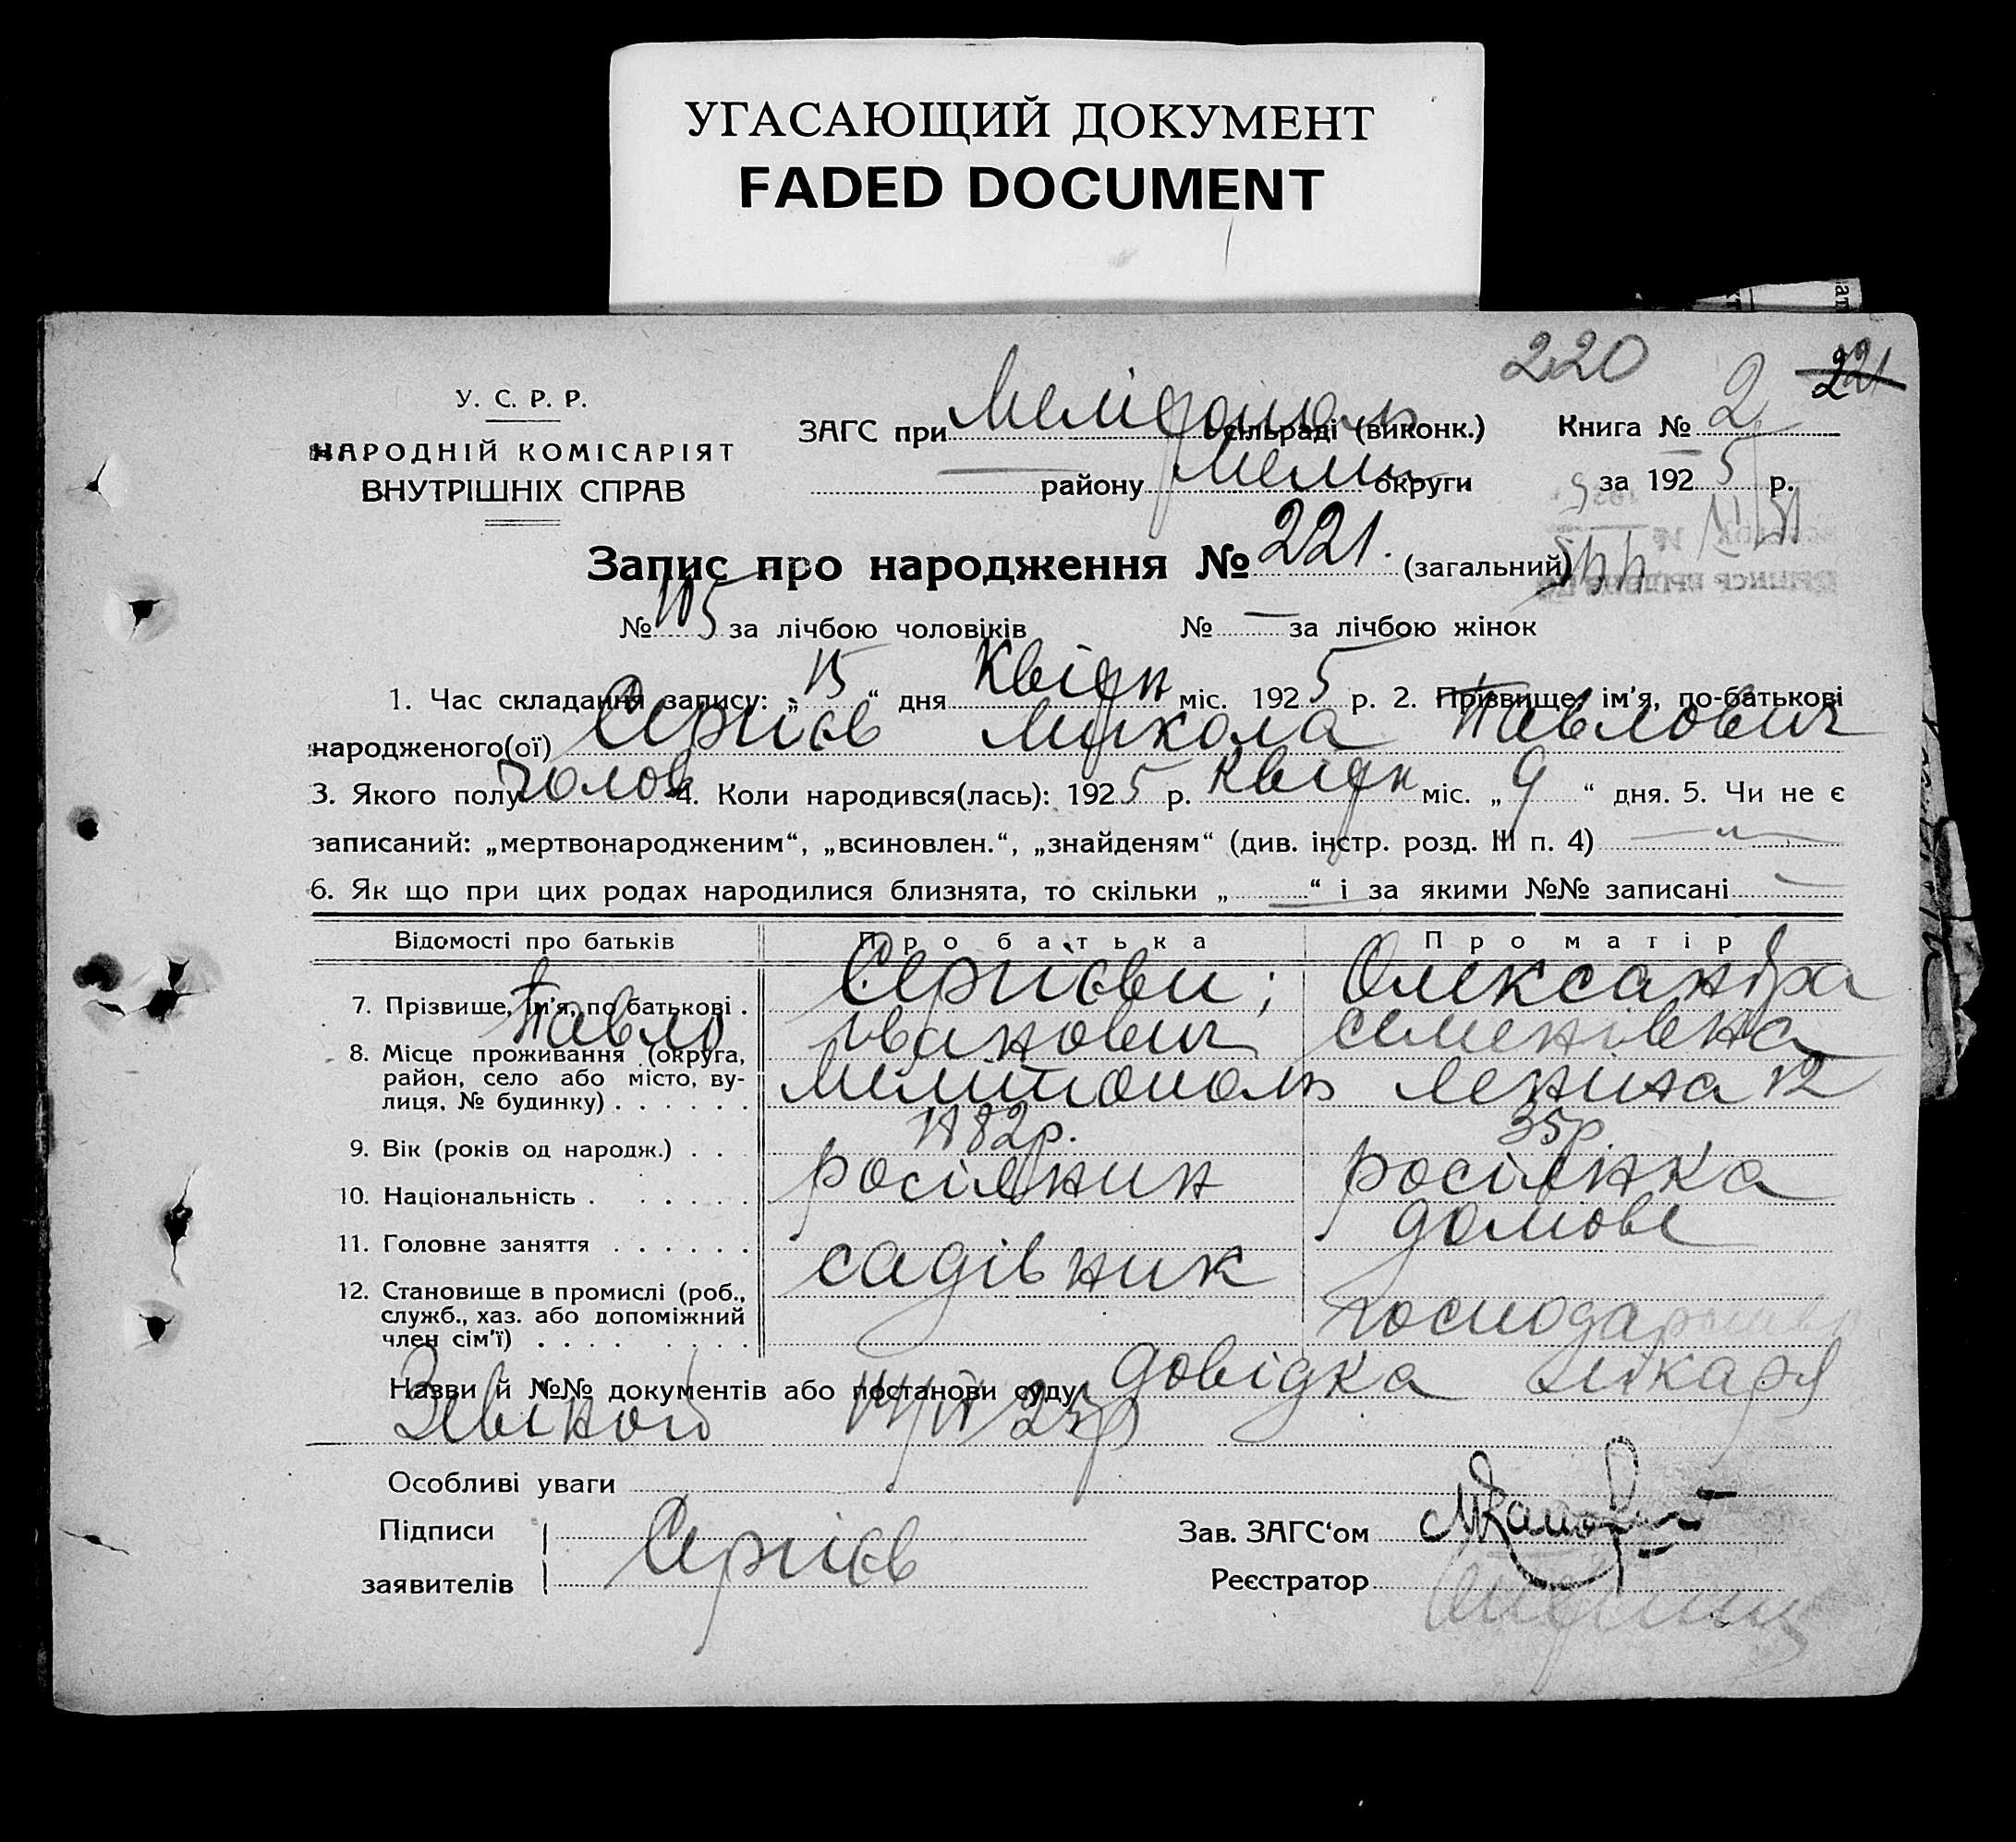 УГАСАЮЩИЙ ДОКУМЕНТ
FADED DOCUMENT
220 221
У. С. Р. Р.
НАРОДНІЙ КОМІСАРІЯТ
ВНУТРІШНІХ СПРАВ
ЗАГС при Мелітополь сільраді (виконк.) Книга № 2
— району Мелит округи за 1925 р.
Запис про народження № 221. (загальний)
№ 115 за лічбою чоловіків № — за лічбою жінок
1. Час складання запису: „15“ дня Квітн міс. 1925 р. 2. Прізвище, ім'я, по-батькові
народженого(ої) Сергієв Микола Павлович
3. Якого полу чолов 4. Коли народився(лась): 1925 р. квітн міс. „9“ дня. 5. Чи не є
записаний: „мертвонародженим“, „всиновлен.“, „знайденям“ (див. інстр. розд. III п. 4) —„—
6. Як що при цих родах народилися близнята, то скільки „—“ і за якими №№ записані —
Відомості про батьків Про батька Про матір
7. Прізвище, ім'я, по батькові . Сергієви; Олександра
Павло Іванович Семенівна
8. Місце проживання (округа,
район, село або місто, ву-
лиця, № будинку) . . . . . . Мелитополь Ленина 12
9. Вік (років од народж.) . . 1882р. 35р
10. Національність . . . . . . росіянин росіянка
11. Головне заняття . . . . . . садівник домове
12. Становище в промислі (роб.,
служб., хаз. або допоміжний
член сім'ї) . . . . . . . . господарство
Назви й №№ документів або постанови суду: довідка лікаря
14/IV 25р
Особливі уваги
Підписи
заявителів Сергієв
Зав. ЗАГС'ом
Реєстратор